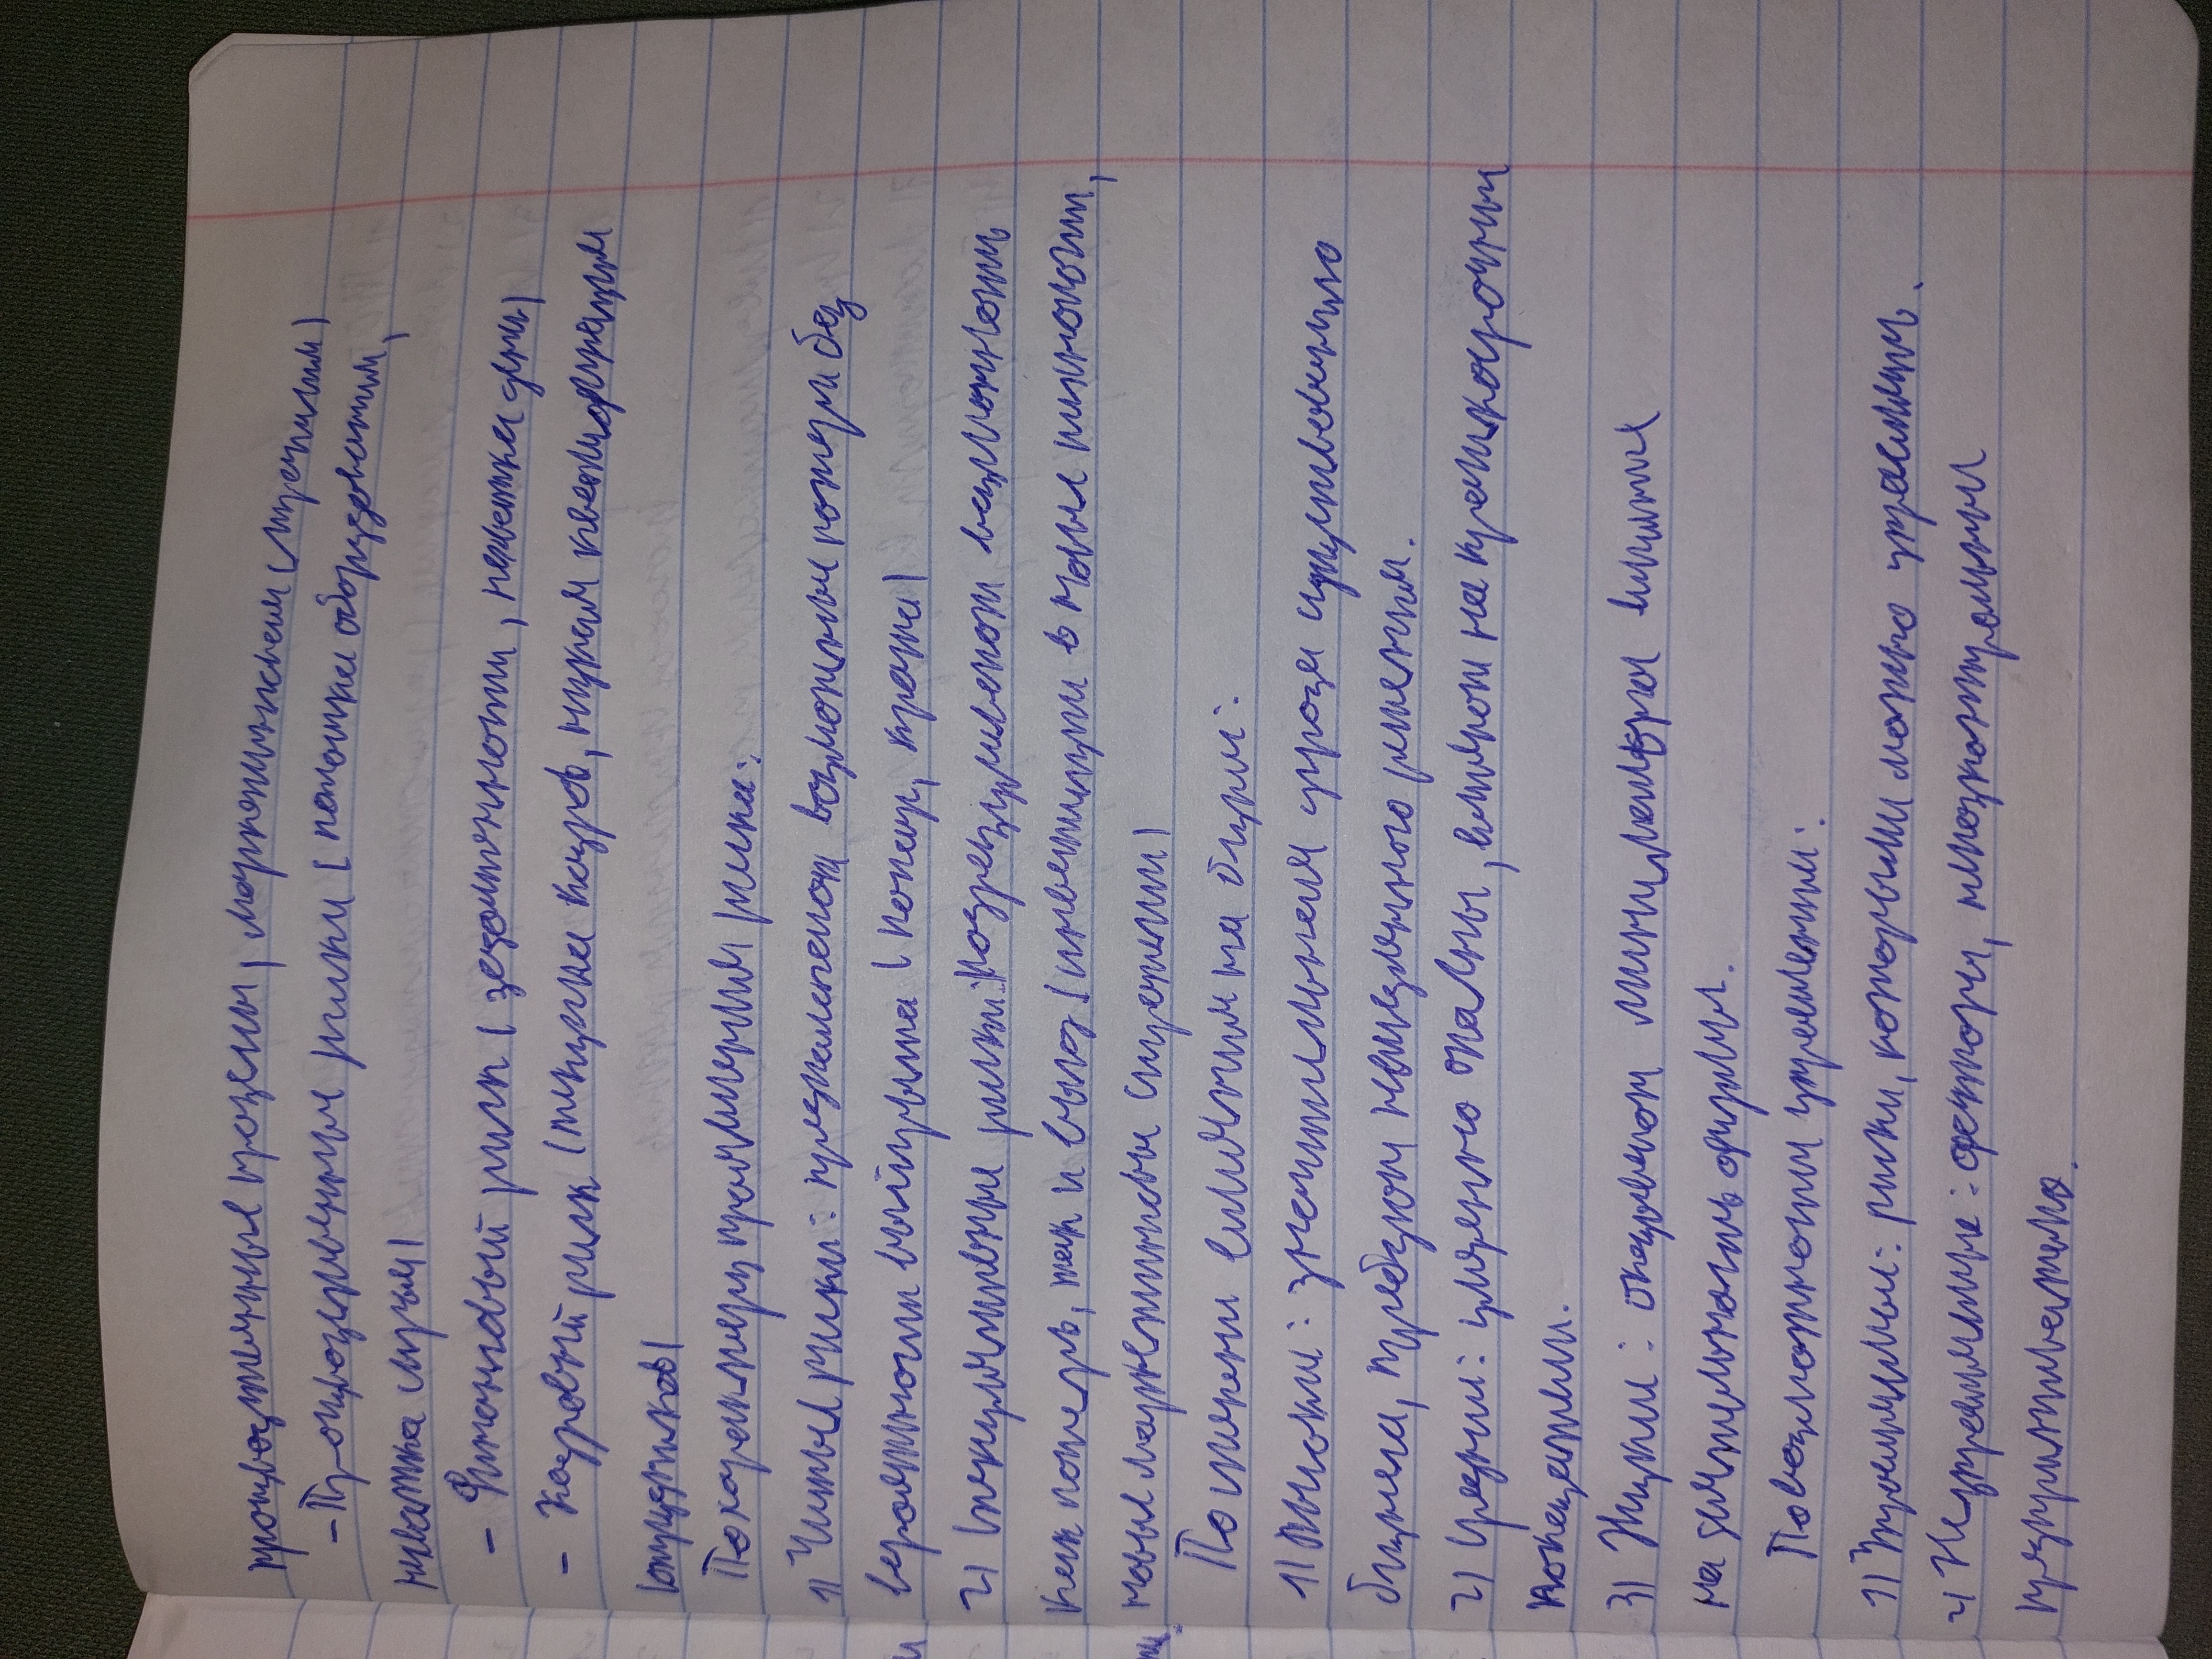 производственные процессы, маркетинговая стратегия)
- Производственные риски (поломка оборудования,
нехватка сырья)
- Финансовый риск (задолженности, нехватка ден)
- Кадровый риск (текучка кадров, низкая квалификация
сотрудников)
По характеру проявления риска:
1) Чистые риски: предполагают возможным потери без
вероятности выигрыша (пожар, кража)
2) Спекулятивные риски: подразумевают возможность
как потерь, так и выгод (инвестиции в новые технологии,
новые маркетинговые стратегии)
По степени влияния на бизнес:
1) Высокий: значительная угроза существованию
бизнеса, требуют немедленного решения.
2) Средний: умерено опасны, влияют на краткосрочный
показатели.
3) Низкий: оказывают минимальное влияние
на деятельность фирмы.
По возможности управления:
1) Управляемые: риски, которыми можно управлять.
2) Неуправляемые: факторы, неконтролируемые
предпринимателю.